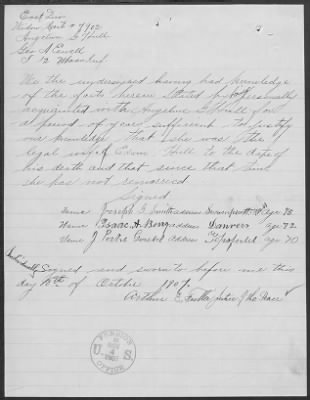 East Div
Widow Cert # 7902
Angeline G Hill
Geo A Ewell
12 Mass Inf
We the undersigned having had knowledge
of the facts herein stated by personally
acquainted with Angeline G Hill for
a period of years sufficient to justify
our knowledge that she was the
legal wife of Hill to the date of
his death and that since that time
she has not remarried
Signed
Name Joseph Smith address age 75
Name Isaac H. Berry address Danvers age 72
Name J Porter Gould address Topsfield age 70
Signed and sworn to before me this
day 15th of October 1907.
Arthur E. Justice of the Peace
PENSION
U S
OFFICE